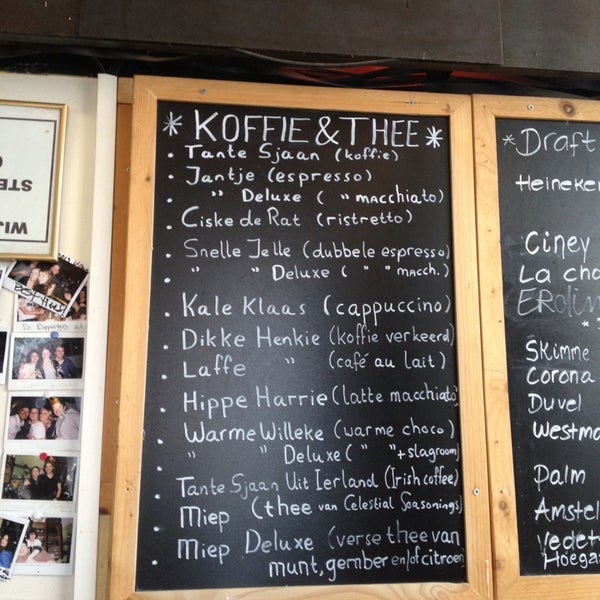 * KOFFIE & THEE *
• Tante Sjaan (koffie)
• Jantje (espresso)
• " Deluxe ( " macchiato)
• Ciske de Rat (ristretto)
• Snelle Jelle (dubbele espresso)
• " " Deluxe ( " " macch.)
• Kale Klaas (cappuccino)
• Dikke Henkie (koffie verkeerd)
• Laffe " (café au lait)
• Hippe Harrie (latte macchiato)
• Warme Willeke (warme choco)
• " " Deluxe ( " " + slagroom)
• Tante Sjaan Uit Ierland (Irish coffee)
• Miep (thee van Celestial Seasonings)
• Miep Deluxe (verse thee van
munt, gember en/of citroen
* Draft
Heineken
Ciney
La cho
ERdin
Skimme
Corona
Duvel
Westma
Palm
Amstel
Vedet
Hoega
WIJ
STE